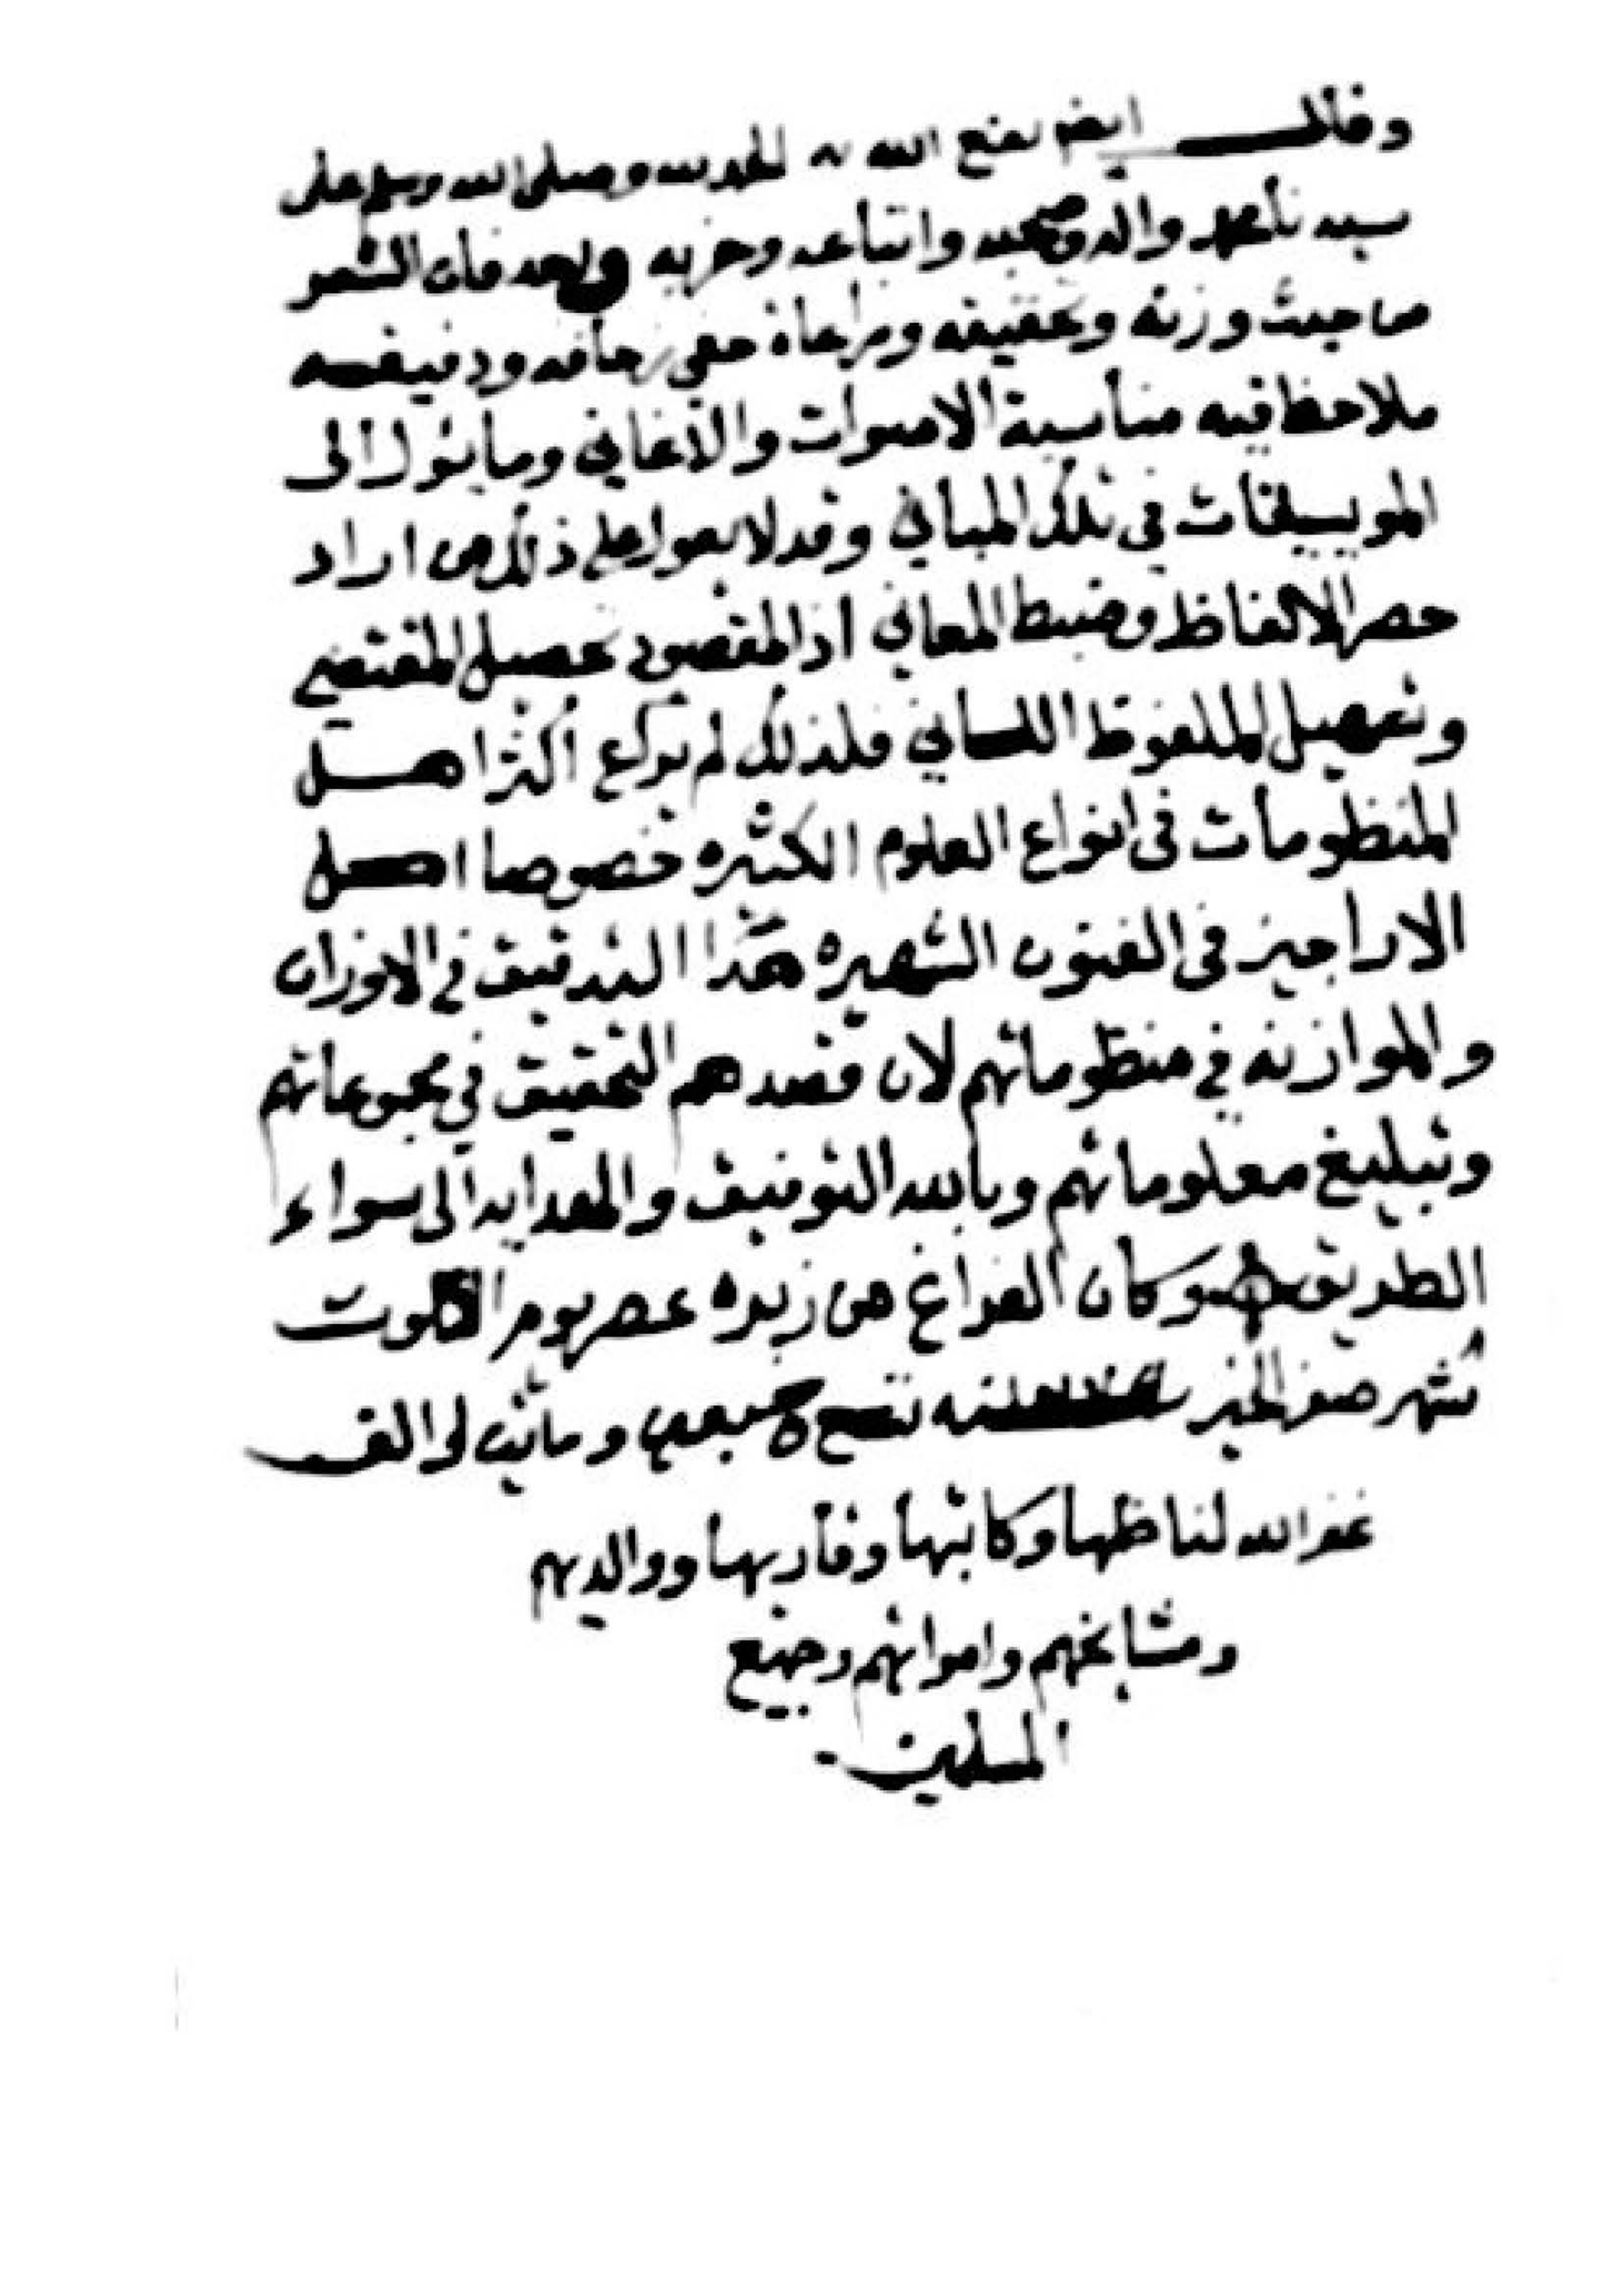 وقال ايضا نفع الله به الحمد لله وصلى الله وسلم على
سيدنا محمد واله وصحبه واتباعه وحزبه وبعد فان الشعر
من حيث وزنه وتحقيقه ومراعاة خفي زحافه ودقيقه
ملاحظ فيه مناسبة الاصوات والاغاني وما يئول الى
المويسيقات في تلك المباني وقد لا يعول على ذلك من اراد
حصر الالفاظ وضبط المعاني اذ المقصود تحصيل المقتضى
وتسهيل الملفوظ اللساني فلذلك لم يراع أكثر اهل
المنظومات في انواع العلوم الكثيره خصوصا اهل
الاراجيز في الفنون الشهيره هذا التدقيق في الاوزان
والموازنه في منظوماتهم لان قصدهم التحقيق في مجموعاتهم
وتبليغ معلوماتهم وبالله التوفيق والهدايه الى سواء
الطريق وكان الفراغ من زبره عصر يوم الثلوث
شهر صفر الخير سنه تسع وسبعين ومائتين والف
غفر الله لناظمها وكاتبها وقاريها ووالديهم
ومشايخهم وامواتهم وجميع
المسلمين